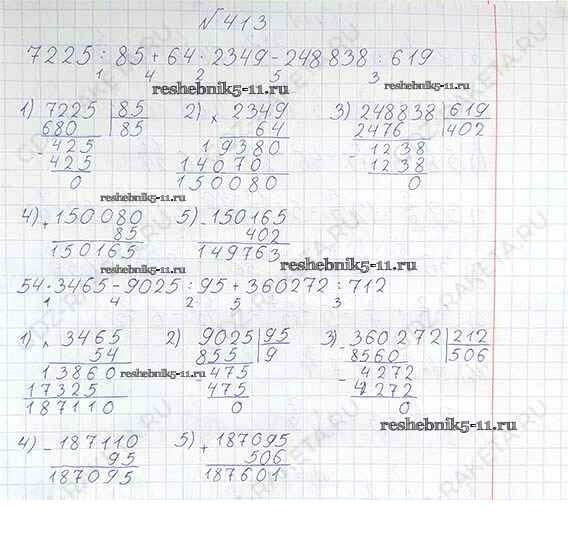 №413
7225 : 85 + 64 · 2349 - 248838 : 619
1 4 2 5 3
reshebnik5-11.ru
1) 7225 |85 2) × 2349 3) 248838 |619
680 |85 64 2476 |402
- 425 19380 - 1238
425 14070 1238
0 150080 0
reshebnik5-11.ru
4) + 150080 5) - 150165
85 402
150165 149763
reshebnik5-11.ru
54 · 3465 - 9025 : 95 + 360272 : 712
1 4 2 5 3
1) × 3465 2) 9025 |95 3) - 360272 |212
54 855 |9 8560 |506
13860 - 475 - 4272
17325 475 4272
187110 0 0
reshebnik5-11.ru
reshebnik5-11.ru
4) - 187110 5) + 187095
95 506
187095 187601
GDZ-RAKETA.RU